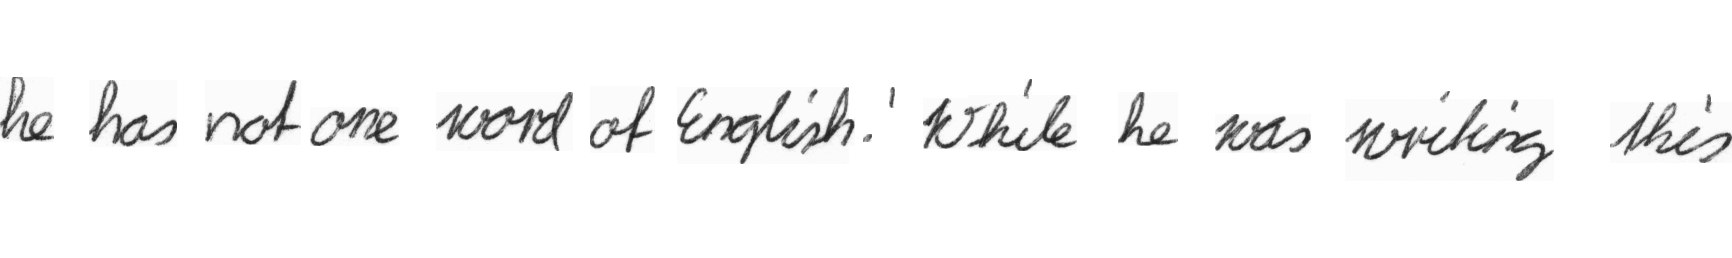 he has not one word of English.' While he was writing this